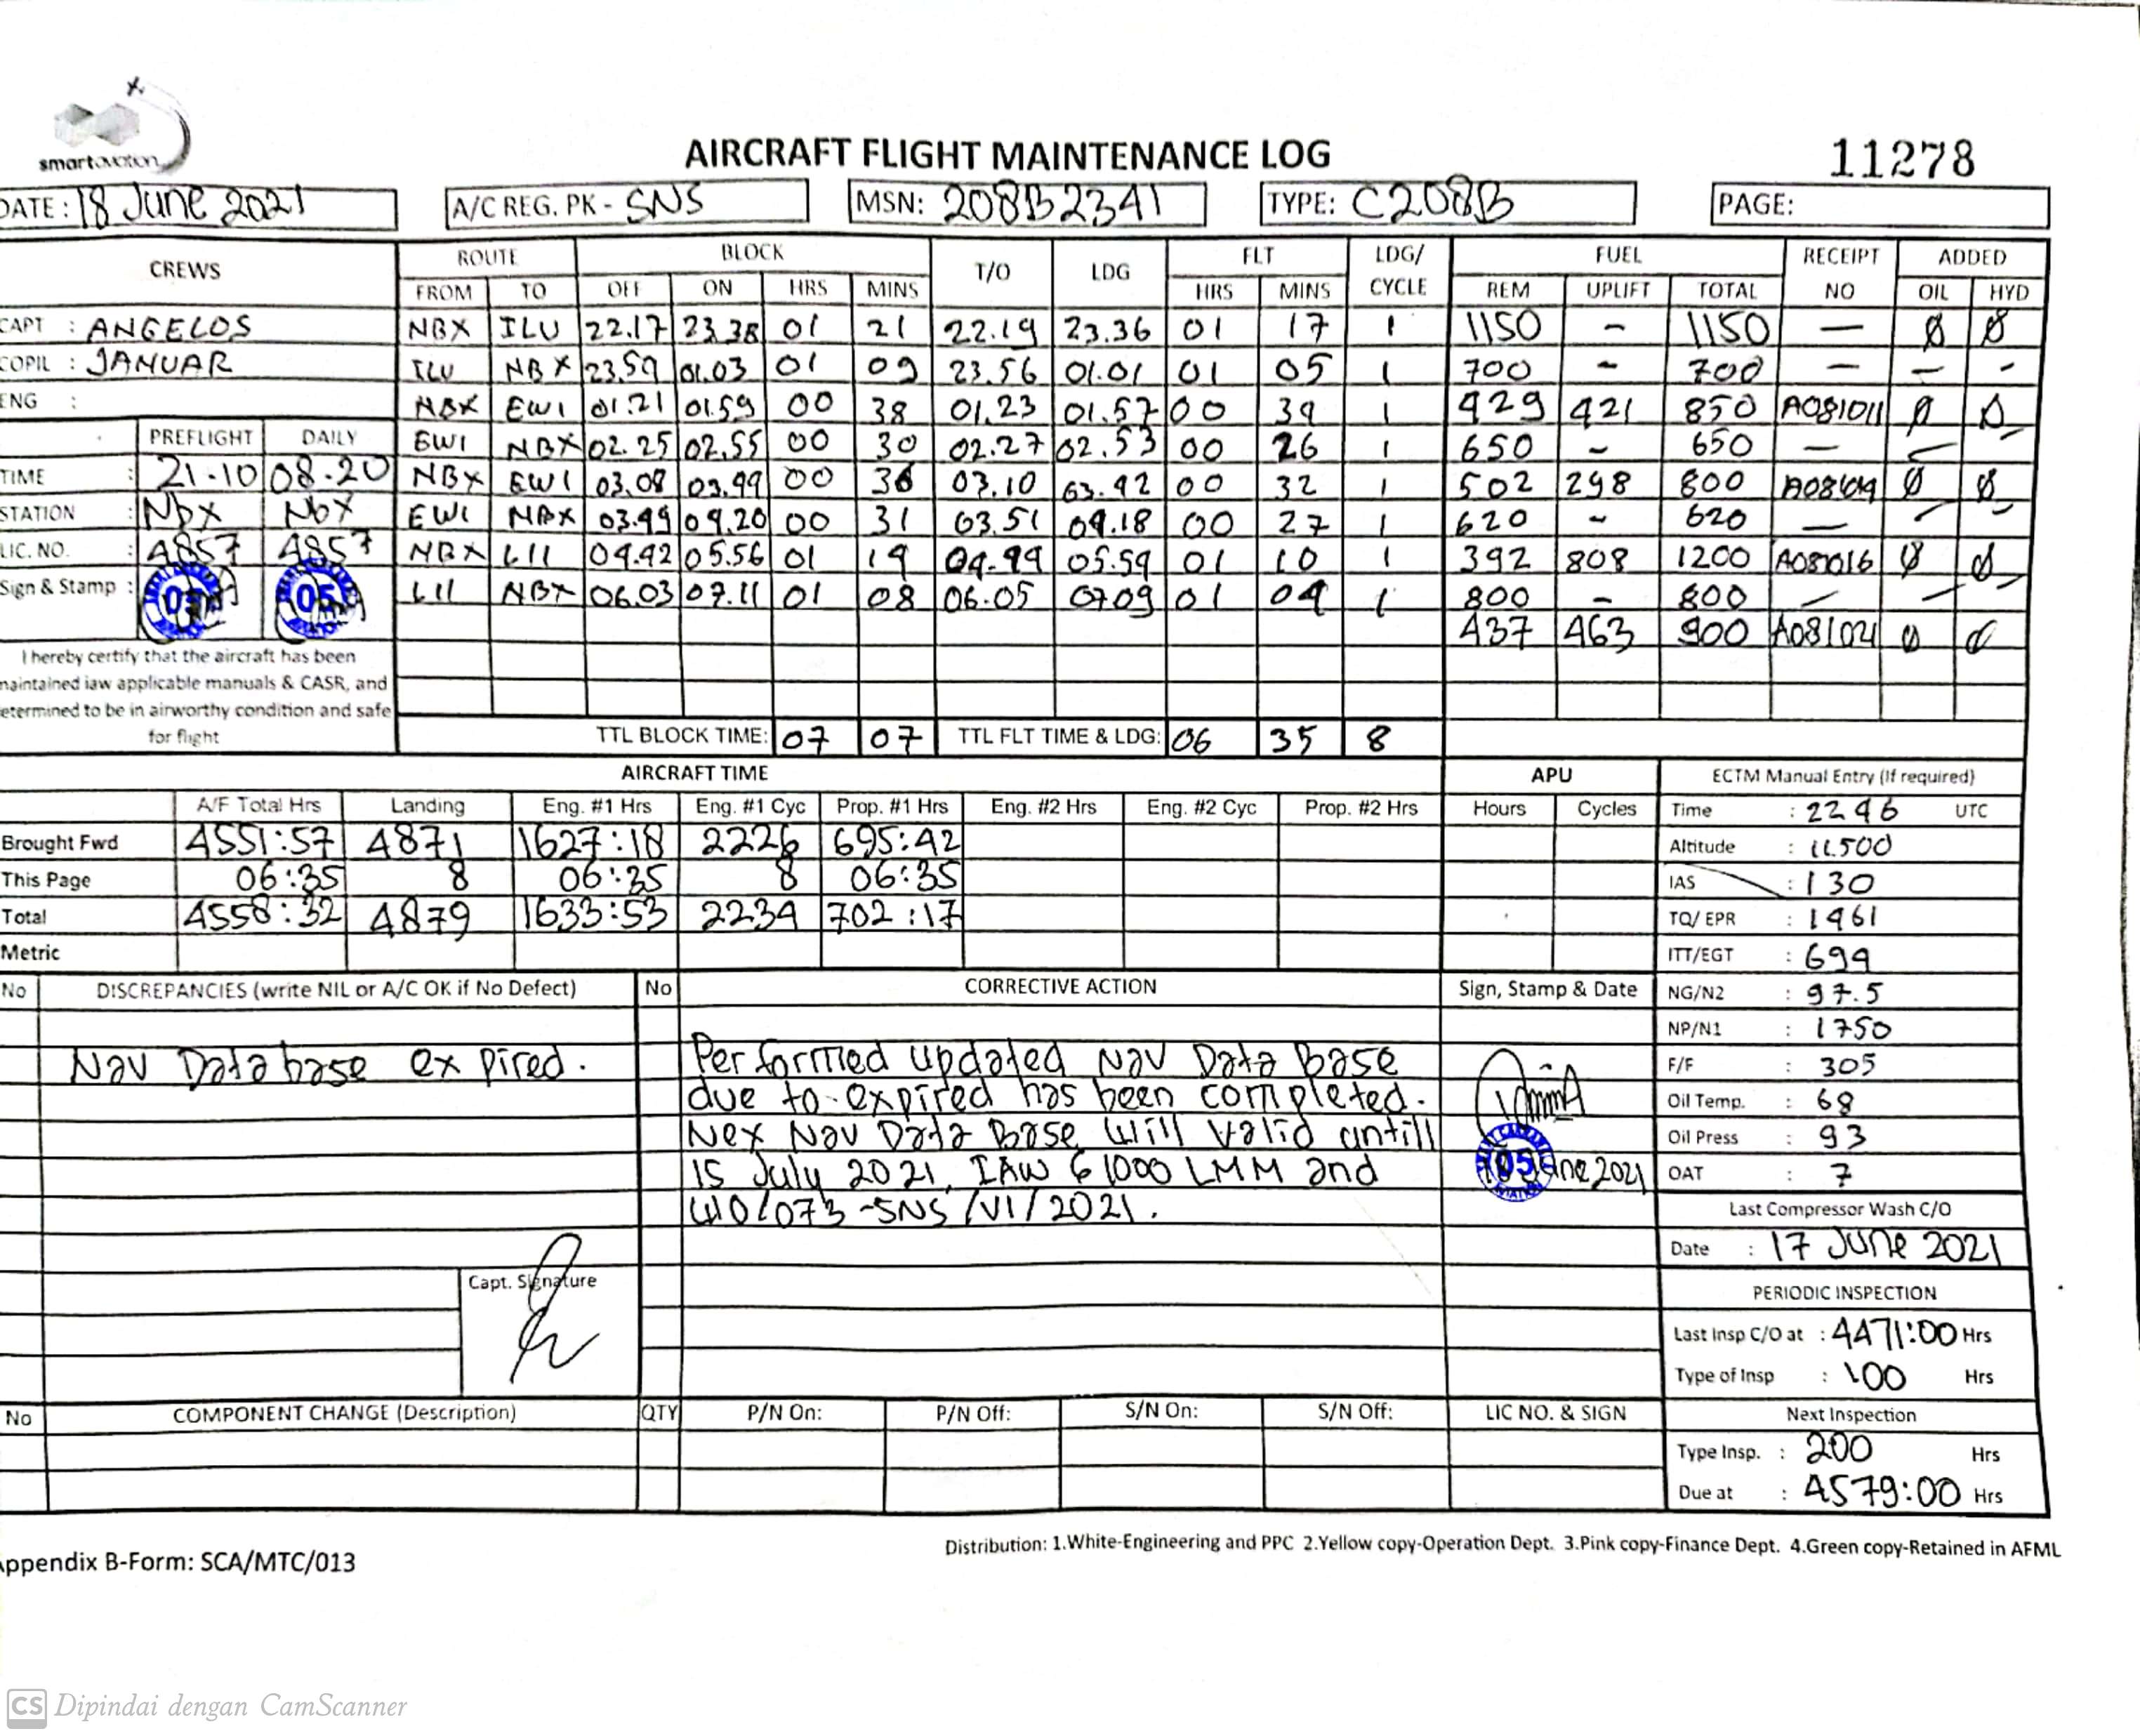 smartaviation
AIRCRAFT FLIGHT MAINTENANCE LOG
11278
DATE : 18 June 2021 A/C REG. PK - SNS MSN: 208B2341 TYPE: C208B PAGE:
CREWS ROUTE BLOCK T/O LDG FLT LDG/ CYCLE FUEL RECEIPT NO ADDED
FROM TO OFF ON HRS MINS HRS MINS REM UPLIFT TOTAL OIL HYD
CAPT : ANGELOS NBX ILU 22.17 23.38 01 21 22.19 23.36 01 17 1 1150 - 1150 — Ø Ø
COPIL : JANUAR ILU NBX 23.54 01.03 01 09 23.56 01.01 01 05 1 700 - 700 — — -
ENG : NBX EWI 01.21 01.59 00 38 01.23 01.57 00 34 1 429 421 850 A081011 Ø Ø
EWI NBX 02.25 02.55 00 30 02.27 02.53 00 26 1 650 - 650 — —
PREFLIGHT DAILY
TIME : 21.10 08.20 NBX EWI 03.08 03.44 00 36 03.10 03.42 00 32 1 502 298 800 Ø Ø
STATION : Nbx Nbx EWI NBX 03.49 04.20 00 31 03.51 04.18 00 27 1 620 - 620 — — —
LIC. NO. : 4857 4857 NBX LII 04.42 05.56 01 14 04.44 05.54 01 10 1 392 808 1200 A081016 Ø Ø
Sign & Stamp : 05 05 LII NBX 06.03 07.11 01 08 06.05 0709 01 04 1 800 - 800 — — —
437 463 900 A081021 Ø Ø
I hereby certify that the aircraft has been
maintained iaw applicable manuals & CASR, and
determined to be in airworthy condition and safe
for flight
TTL BLOCK TIME: 07 07 TTL FLT TIME & LDG: 06 35 8
AIRCRAFT TIME APU ECTM Manual Entry (If required)
A/F Total Hrs Landing Eng. #1 Hrs Eng. #1 Cyc Prop. #1 Hrs Eng. #2 Hrs Eng. #2 Cyc Prop. #2 Hrs Hours Cycles Time : 2246 UTC
Brought Fwd 4551:57 4871 1627:18 2226 695:42 Altitude : 11.500
This Page 06:35 8 06:35 8 06:35 IAS : 130
Total 4558:32 4879 1633:53 2234 702:17 TQ/ EPR : 1461
Metric ITT/EGT : 694
No DISCREPANCIES (write NIL or A/C OK if No Defect) No CORRECTIVE ACTION Sign, Stamp & Date NG/N2 : 97.5
NP/N1 : 1750
Nav Data base expired. Performed updated Nav Data Base F/F : 305
due to expired has been completed. Oil Temp. : 68
Nex Nav Data Base will valid untill Oil Press : 93
15 July 2021, IAW G1000 LMM and 05 June 2021 OAT : 7
WO/073-SNS/VI/2021. Last Compressor Wash C/O
Date : 17 June 2021
Capt. Signature
PERIODIC INSPECTION
Last Insp C/O at : 4471:00 Hrs
Type of Insp : 100 Hrs
No COMPONENT CHANGE (Description) QTY P/N On: P/N Off: S/N On: S/N Off: LIC NO. & SIGN Next Inspection
Type Insp. : 200 Hrs
Due at : 4579:00 Hrs
Distribution: 1.White-Engineering and PPC 2.Yellow copy-Operation Dept. 3.Pink copy-Finance Dept. 4.Green copy-Retained in AFML
Appendix B-Form: SCA/MTC/013
CS Dipindai dengan CamScanner